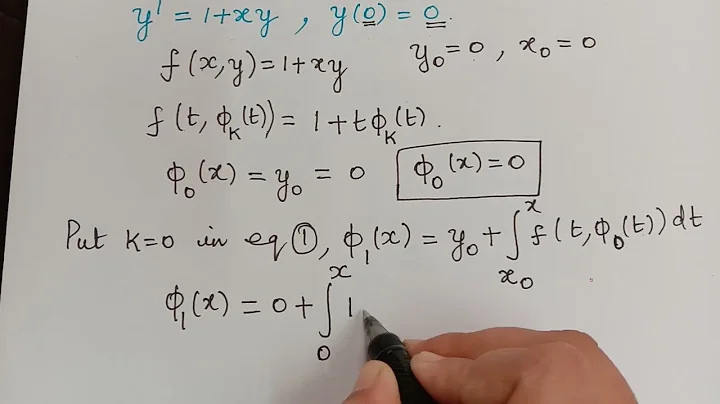 y' = 1+xy , y(0) = 0.
f(x,y)=1+xy y₀=0 , x₀=0
f(t, ϕₖ(t)) = 1+tϕₖ(t).
ϕ₀(x) = y₀ = 0 ϕ₀(x)=0
Put K=0 in eq ①, ϕ₁(x) = y₀+∫ₓ₀ˣ f(t,ϕ₀(t)) dt
ϕ₁(x) = 0+∫₀ˣ 1